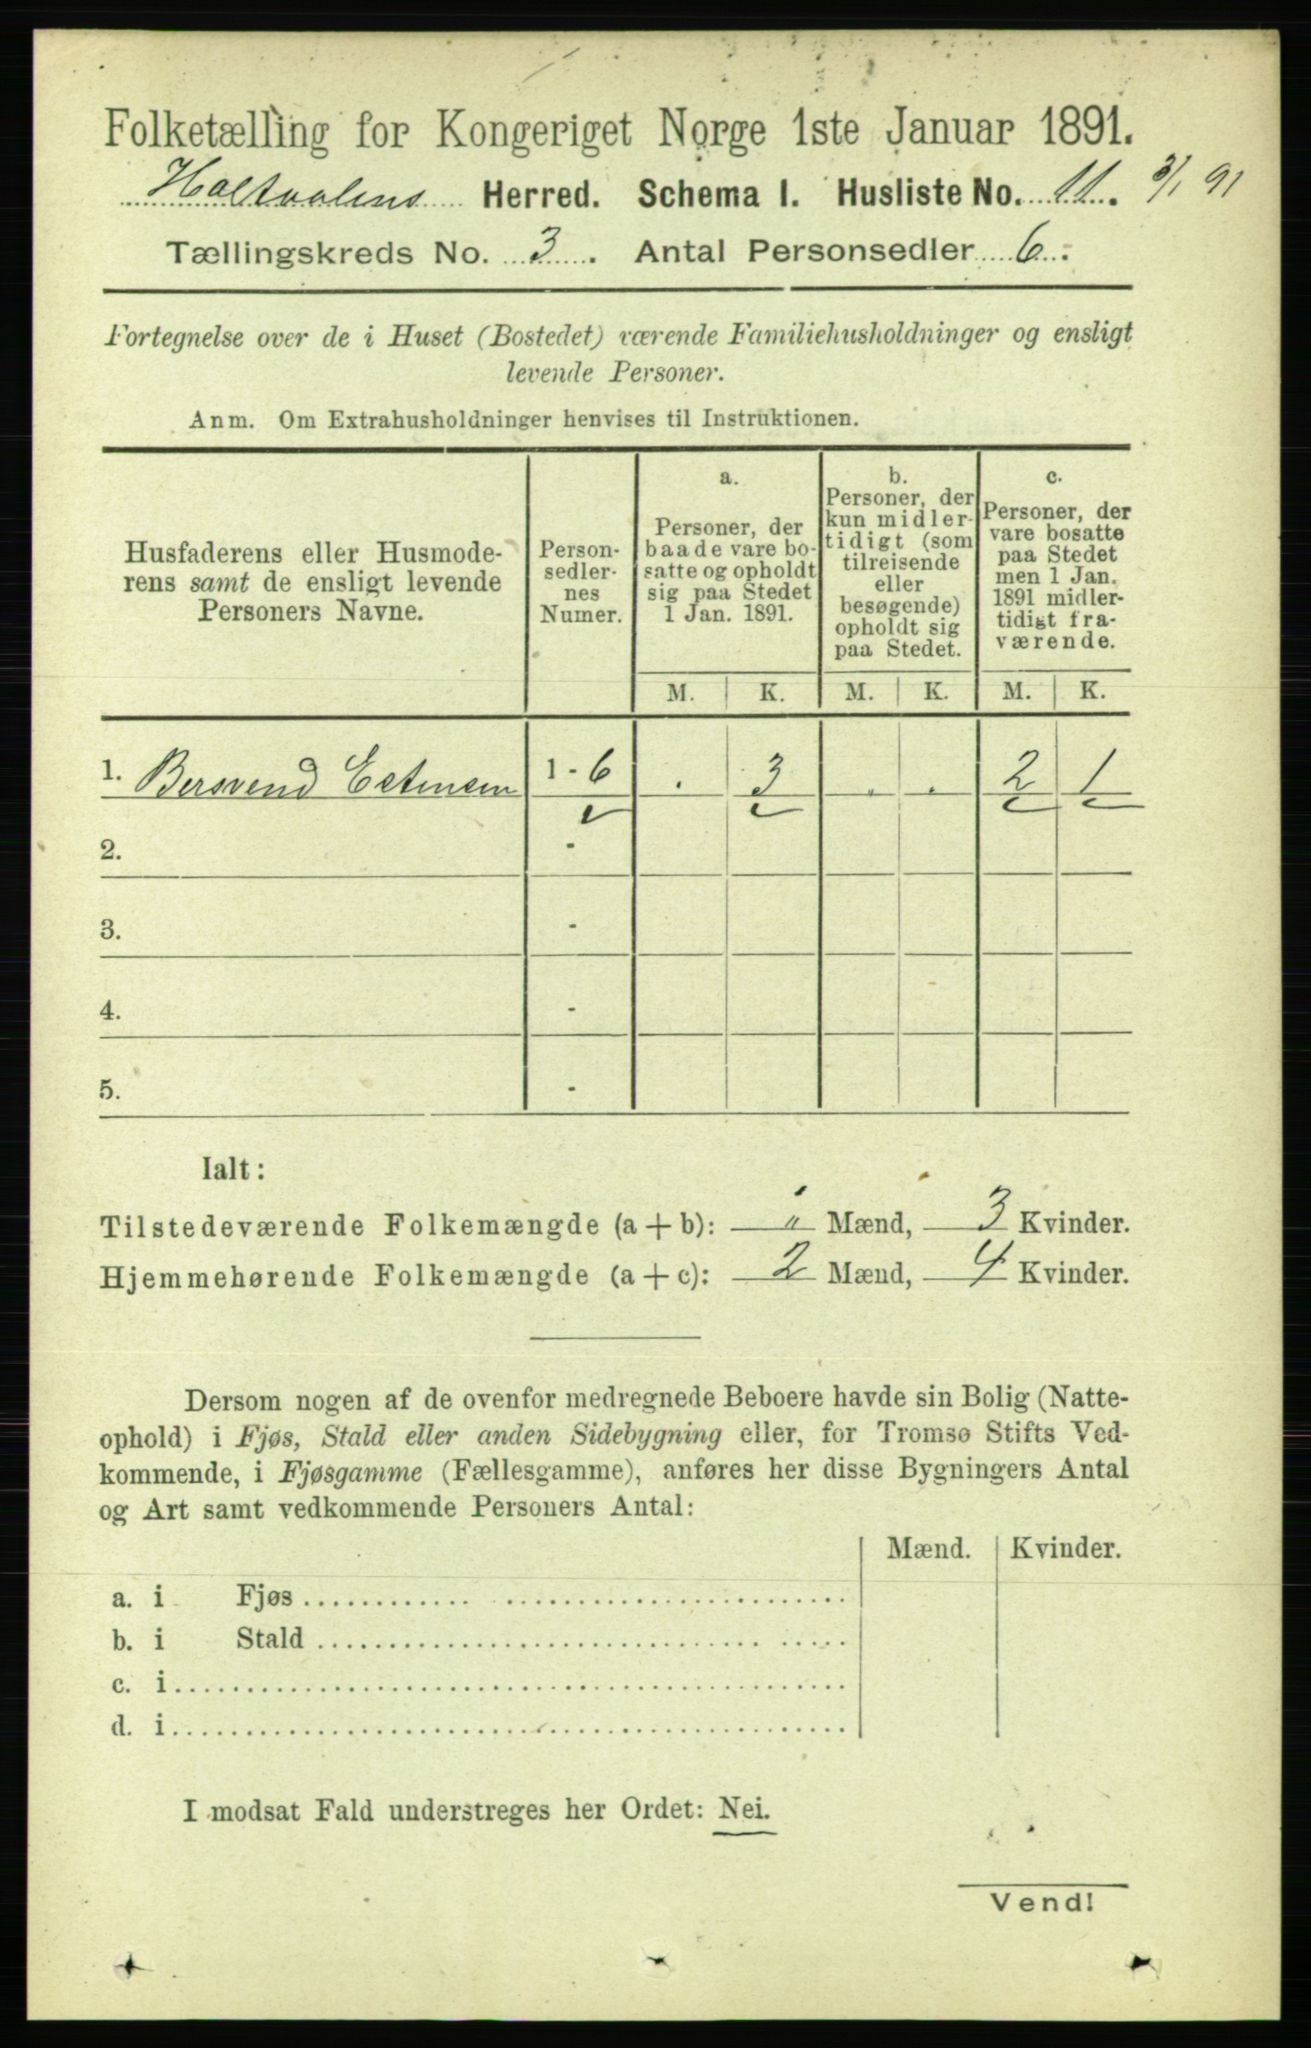 Folketælling for Kongeriget Norge 1ste Januar 1891.
Holtaalens Herred. Schema I. Husliste No. 11. 3/1 91
Tællingskreds No. 3. Antal Personsedler 6.
Fortegnelse over de i Huset (Bostedet) værende Familiehusholdninger og ensligt
levende Personer.
Anm. Om Extrahusholdninger henvises til Instruktionen.
Husfaderens eller Husmode-
rens samt de ensligt levende
Personers Navne.
Person-
sedler-
nes
Numer.
a.
Personer, der
baade vare bo-
satte og opholdt
sig paa Stedet
1 Jan. 1891.
b.
Personer, der
kun midler-
tidigt (som
tilreisende
eller
besøgende)
opholdt sig
paa Stedet.
c.
Personer, der
vare bosatte
paa Stedet
men 1 Jan.
1891 midler-
tidigt fra-
værende.
M. K. M. K. M. K.
1. Bersvend Estensen 1 - 6 . 3 . . 2 1
2. -
3. -
4. -
5. -
Ialt:
Tilstedeværende Folkemængde (a + b): " Mænd, 3 Kvinder.
Hjemmehørende Folkemængde (a + c): 2 Mænd, 4 Kvinder.
Dersom nogen af de ovenfor medregnede Beboere havde sin Bolig (Natte-
ophold) i Fjøs, Stald eller anden Sidebygning eller, for Tromsø Stifts Ved-
kommende, i Fjøsgamme (Fællesgamme), anføres her disse Bygningers Antal
og Art samt vedkommende Personers Antal:
Mænd. Kvinder.
a. i Fjøs
b. i Stald
c. i
d. i
I modsat Fald understreges her Ordet: Nei.
Vend!